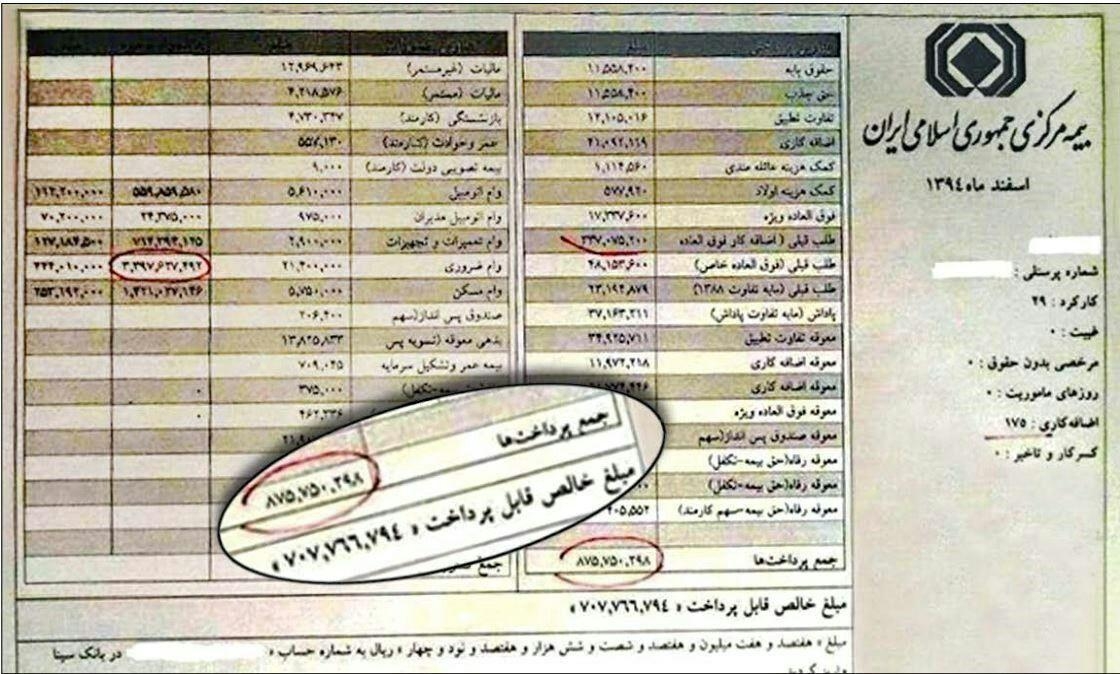 بیمه مرکزی جمهوری اسلامی ایران
اسفند ماه ۱۳۹۴
شماره پرسنلی :
کارکرد : ۲۹
غیبت : ۰
مرخصی بدون حقوق : ۰
روزهای ماموریت : ۰
اضافه‌کاری : ۱۷۵
کسرکار و تاخیر : ۰
مبلغ
حقوق پایه ۱۱,۵۵۸,۴۰۰
حق جذب ۱۱,۵۵۸,۴۰۰
تفاوت تطبیق ۱۲,۱۰۵,۰۱۶
اضافه کاری ۲۱,۰۹۲,۱۱۹
کمک هزینه عائله مندی ۱,۱۱۴,۵۶۰
کمک هزینه اولاد ۵۷۷,۹۲۰
فوق العاده ویژه ۱۷,۳۳۷,۶۰۰
طلب قبلی ( اضافه کار فوق العاده ۳۳۷,۰۷۵,۲۰۰
طلب قبلی (فوق العاده خاص) ۴۸,۱۵۳,۶۰۰
طلب قبلی (مابه تفاوت ۱۳۸۸) ۲۳,۱۹۴,۸۷۹
پاداش (مابه تفاوت پاداش) ۳۷,۱۶۳,۲۱۱
معوقه تفاوت تطبیق ۳۴,۹۲۵,۷۱۱
معوقه اضافه کاری ۱۱,۹۷۲,۲۱۸
معوقه اضافه کاری
معوقه فوق العاده ویژه
معوقه صندوق پس انداز(سهم
معوقه رفاه(حق بیمه-تکفل)
معوقه رفاه(حق بیمه-تکفل)
معوقه رفاه(حق بیمه-سهم کارمند) ۴۰۵,۵۵۲
جمع پرداخت‌ها ۸۷۵,۷۵۰,۲۹۸
مبلغ
مالیات (غیرمستمر) ۱۲,۹۶۹,۶۴۳
مالیات (مستمر) ۴,۲۱۸,۵۷۶
بازنشستگی (کارمند) ۴,۷۳۰,۳۲۷
عمر و حوادث (کارمند) ۵۵۷,۱۳۰
بیمه تصویبی دولت (کارمند) ۹,۰۰۰
وام اتومبیل ۵,۶۱۰,۰۰۰ ۵۵۹,۸۵۹,۵۸۰ ۱۱۲,۲۰۰,۰۰۰
وام اتومبیل مدیران ۹۷۵,۰۰۰ ۲۴,۳۷۵,۰۰۰ ۷۰,۲۰۰,۰۰۰
وام تعمیرات و تجهیزات ۲,۹۰۰,۰۰۰ ۷۱۴,۲۹۳,۱۲۵ ۱۲۷,۱۸۴,۵۰۰
وام ضروری ۲۱,۴۰۰,۰۰۰ ۳,۳۹۷,۶۳۷,۴۹۲ ۳۴۴,۰۱۰,۰۰۰
وام مسکن ۵,۷۵۰,۰۰۰ ۱,۴۲۱,۰۳۷,۱۴۶ ۲۵۳,۱۹۲,۰۰۰
صندوق پس انداز(سهم ۲۰۶,۴۰۰
بدهی معوقه (تسویه پس ۱۳,۸۲۵,۸۳۳
بیمه عمر وتشکیل سرمایه ۷۰۹,۰۴۵
۳۷۵,۰۰۰ ۰
۴۶۲,۳۳۶ ۰
جمع
جمع پرداخت‌ها
۸۷۵,۷۵۰,۲۹۸
مبلغ خالص قابل پرداخت « ۷۰۷,۷۶۶,۷۹۴ »
مبلغ خالص قابل پرداخت « ۷۰۷,۷۶۶,۷۹۴ »
مبلغ « هفتصد و هفت میلیون و هفتصد و شصت و شش هزار و هفتصد و نود و چهار » ریال به شماره حساب « در بانک سینا